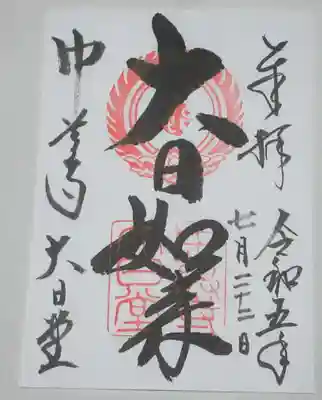 奉拝
令和五年
七月二十二日
大日如来
中
大日堂